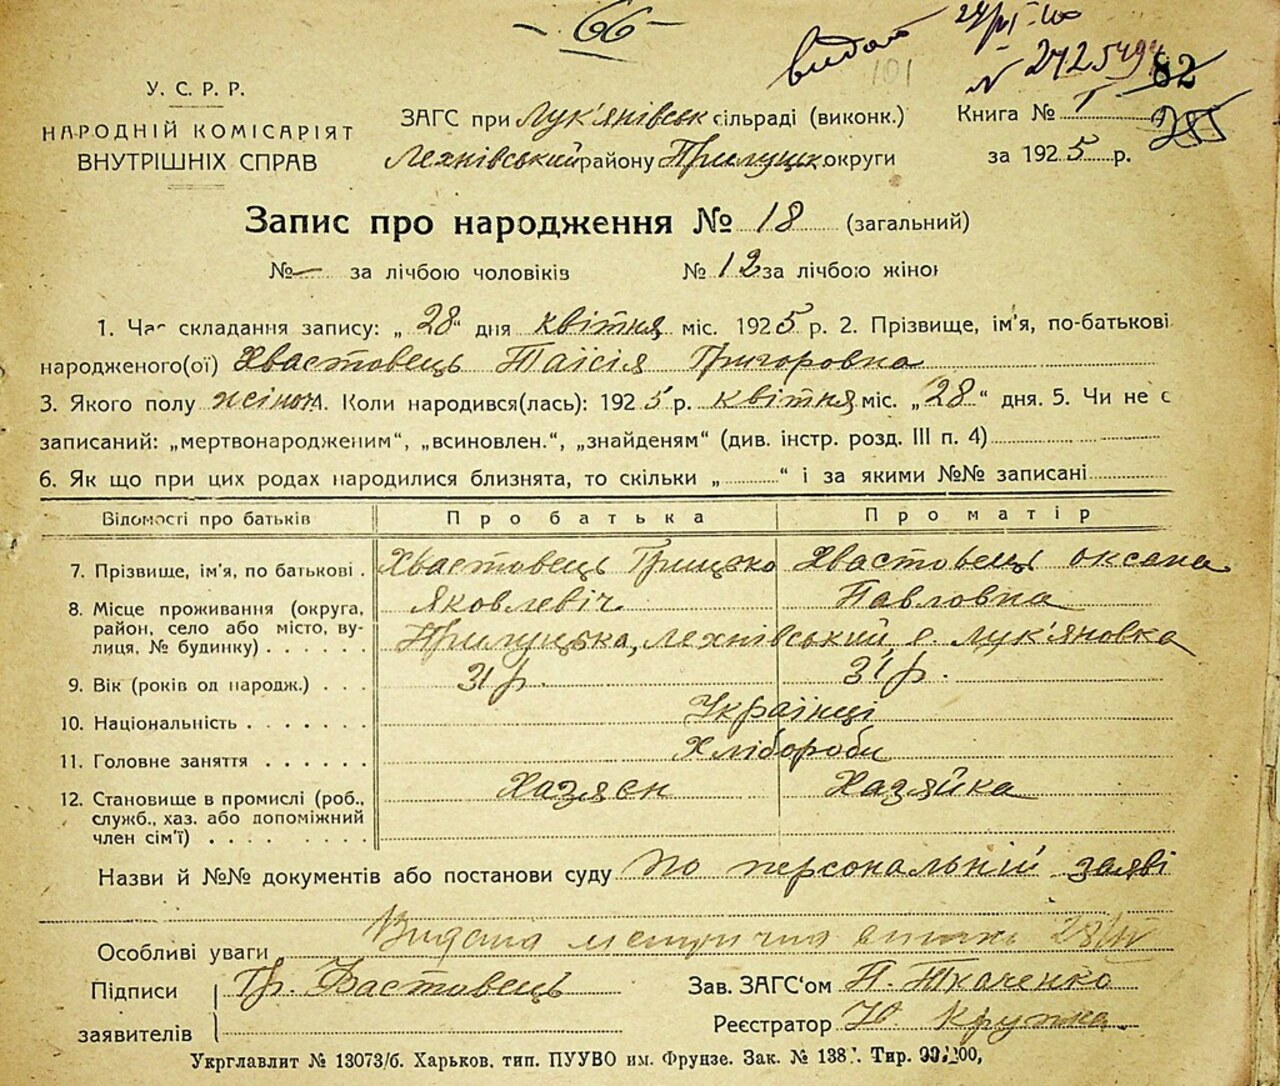 - 66 -
видат
№ 2425494
82
101
285
У. С. Р. Р.
НАРОДНІЙ КОМІСАРІЯТ
ВНУТРІШНІХ СПРАВ
ЗАГС при Лук'янівськ сільраді (виконк.)
Лехнівський району Прилуцьк округи
Книга № 1
за 1925 р.
Запис про народження № 18 (загальний)
№ — за лічбою чоловіків № 12 за лічбою жінок
1. Час складання запису: „28“ дня квітня міс. 1925 р. 2. Прізвище, ім'я, по-батькові
народженого(ої) Хвастовець Таїсія Григоровна
3. Якого полу жіноч. 4. Коли народився(лась): 1925 р. квітня міс. „28“ дня. 5. Чи не є
записаний: „мертвонародженим“, „всиновлен.“, „знайденям“ (див. інстр. розд. III п. 4)
6. Як що при цих родах народилися близнята, то скільки „ “ і за якими №№ записані
Відомості про батьків Про батька Про матір
7. Прізвище, ім'я, по батькові . Хвастовець Грицько Хвастовець Оксана
Яковлевіч Павловна
8. Місце проживання (округа,
район, село або місто, ву-
лиця, № будинку) . . . . . . Прилуцька, Лехнівський с. Лук'яновка
9. Вік (років од народж.) . . . 31 р. 31 р.
10. Національність . . . . . . . Українці
11. Головне заняття . . . . . . Хлібороби
12. Становище в промислі (роб.,
служб., хаз. або допоміжний
член сім'ї) . . . . . . . Хазяєн Хазяйка
Назви й №№ документів або постанови суду по персональній заяві
Особливі уваги Видана метрична 28/IV
Підписи
заявителів
Гр. Хвастовець
Зав. ЗАГС'ом П. Ткаченко
Реєстратор Ю. Крупка
Укрглавлит № 13073/б. Харьков, тип. ПУУВО им. Фрунзе. Зак. № 138 Тир.